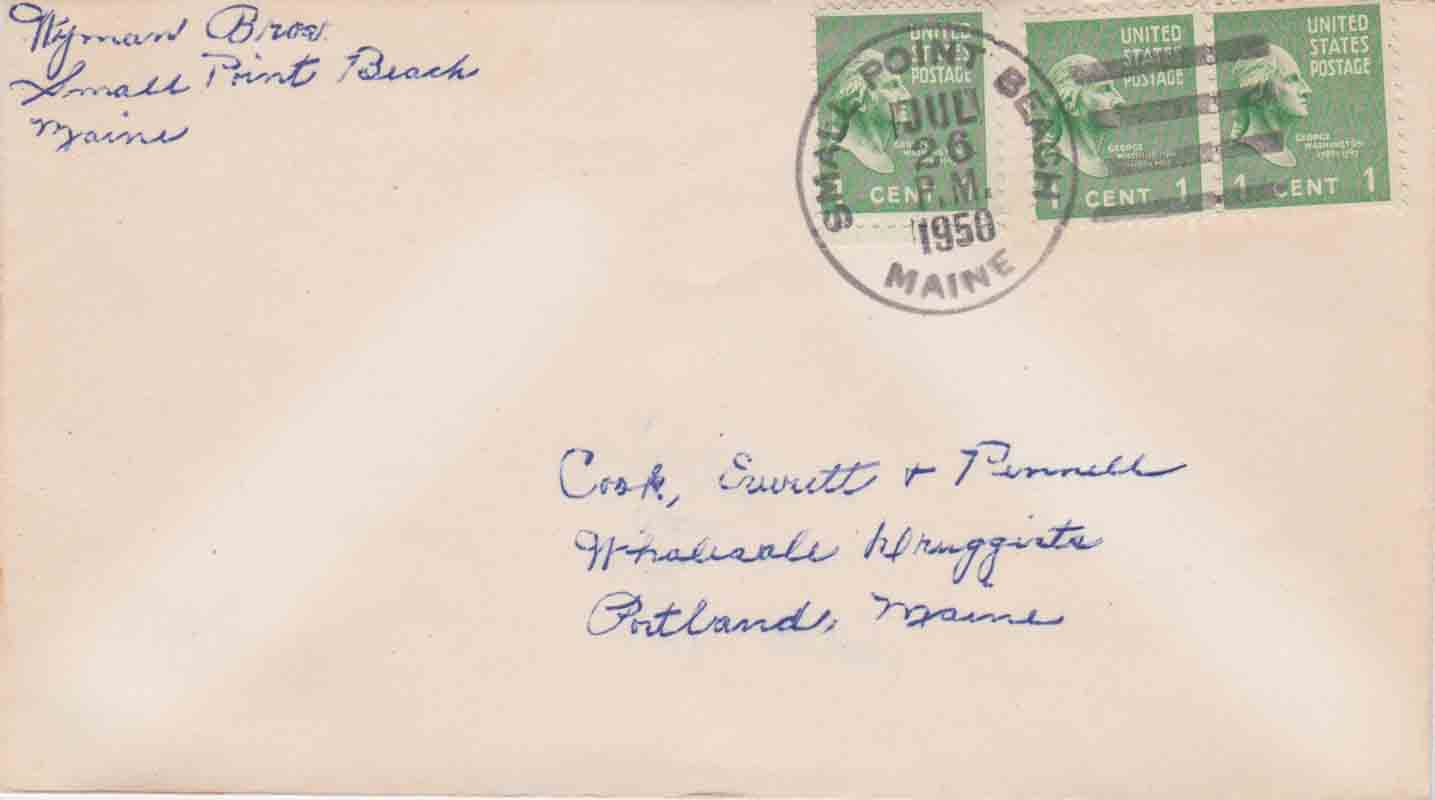 Wyman Bros.
Small Point Beach
Maine
UNITED
STATES
POSTAGE
GEORGE
WASHINGTON
1 CENT
UNITED
STATES
POSTAGE
GEORGE
WASHINGTON
1 CENT 1
UNITED
STATES
POSTAGE
GEORGE
WASHINGTON
1 CENT 1
SMALL POINT BEACH
JUL
26
P.M.
1950
MAINE
Cook, Everett + Pennell
Wholesale Druggists
Portland, Maine